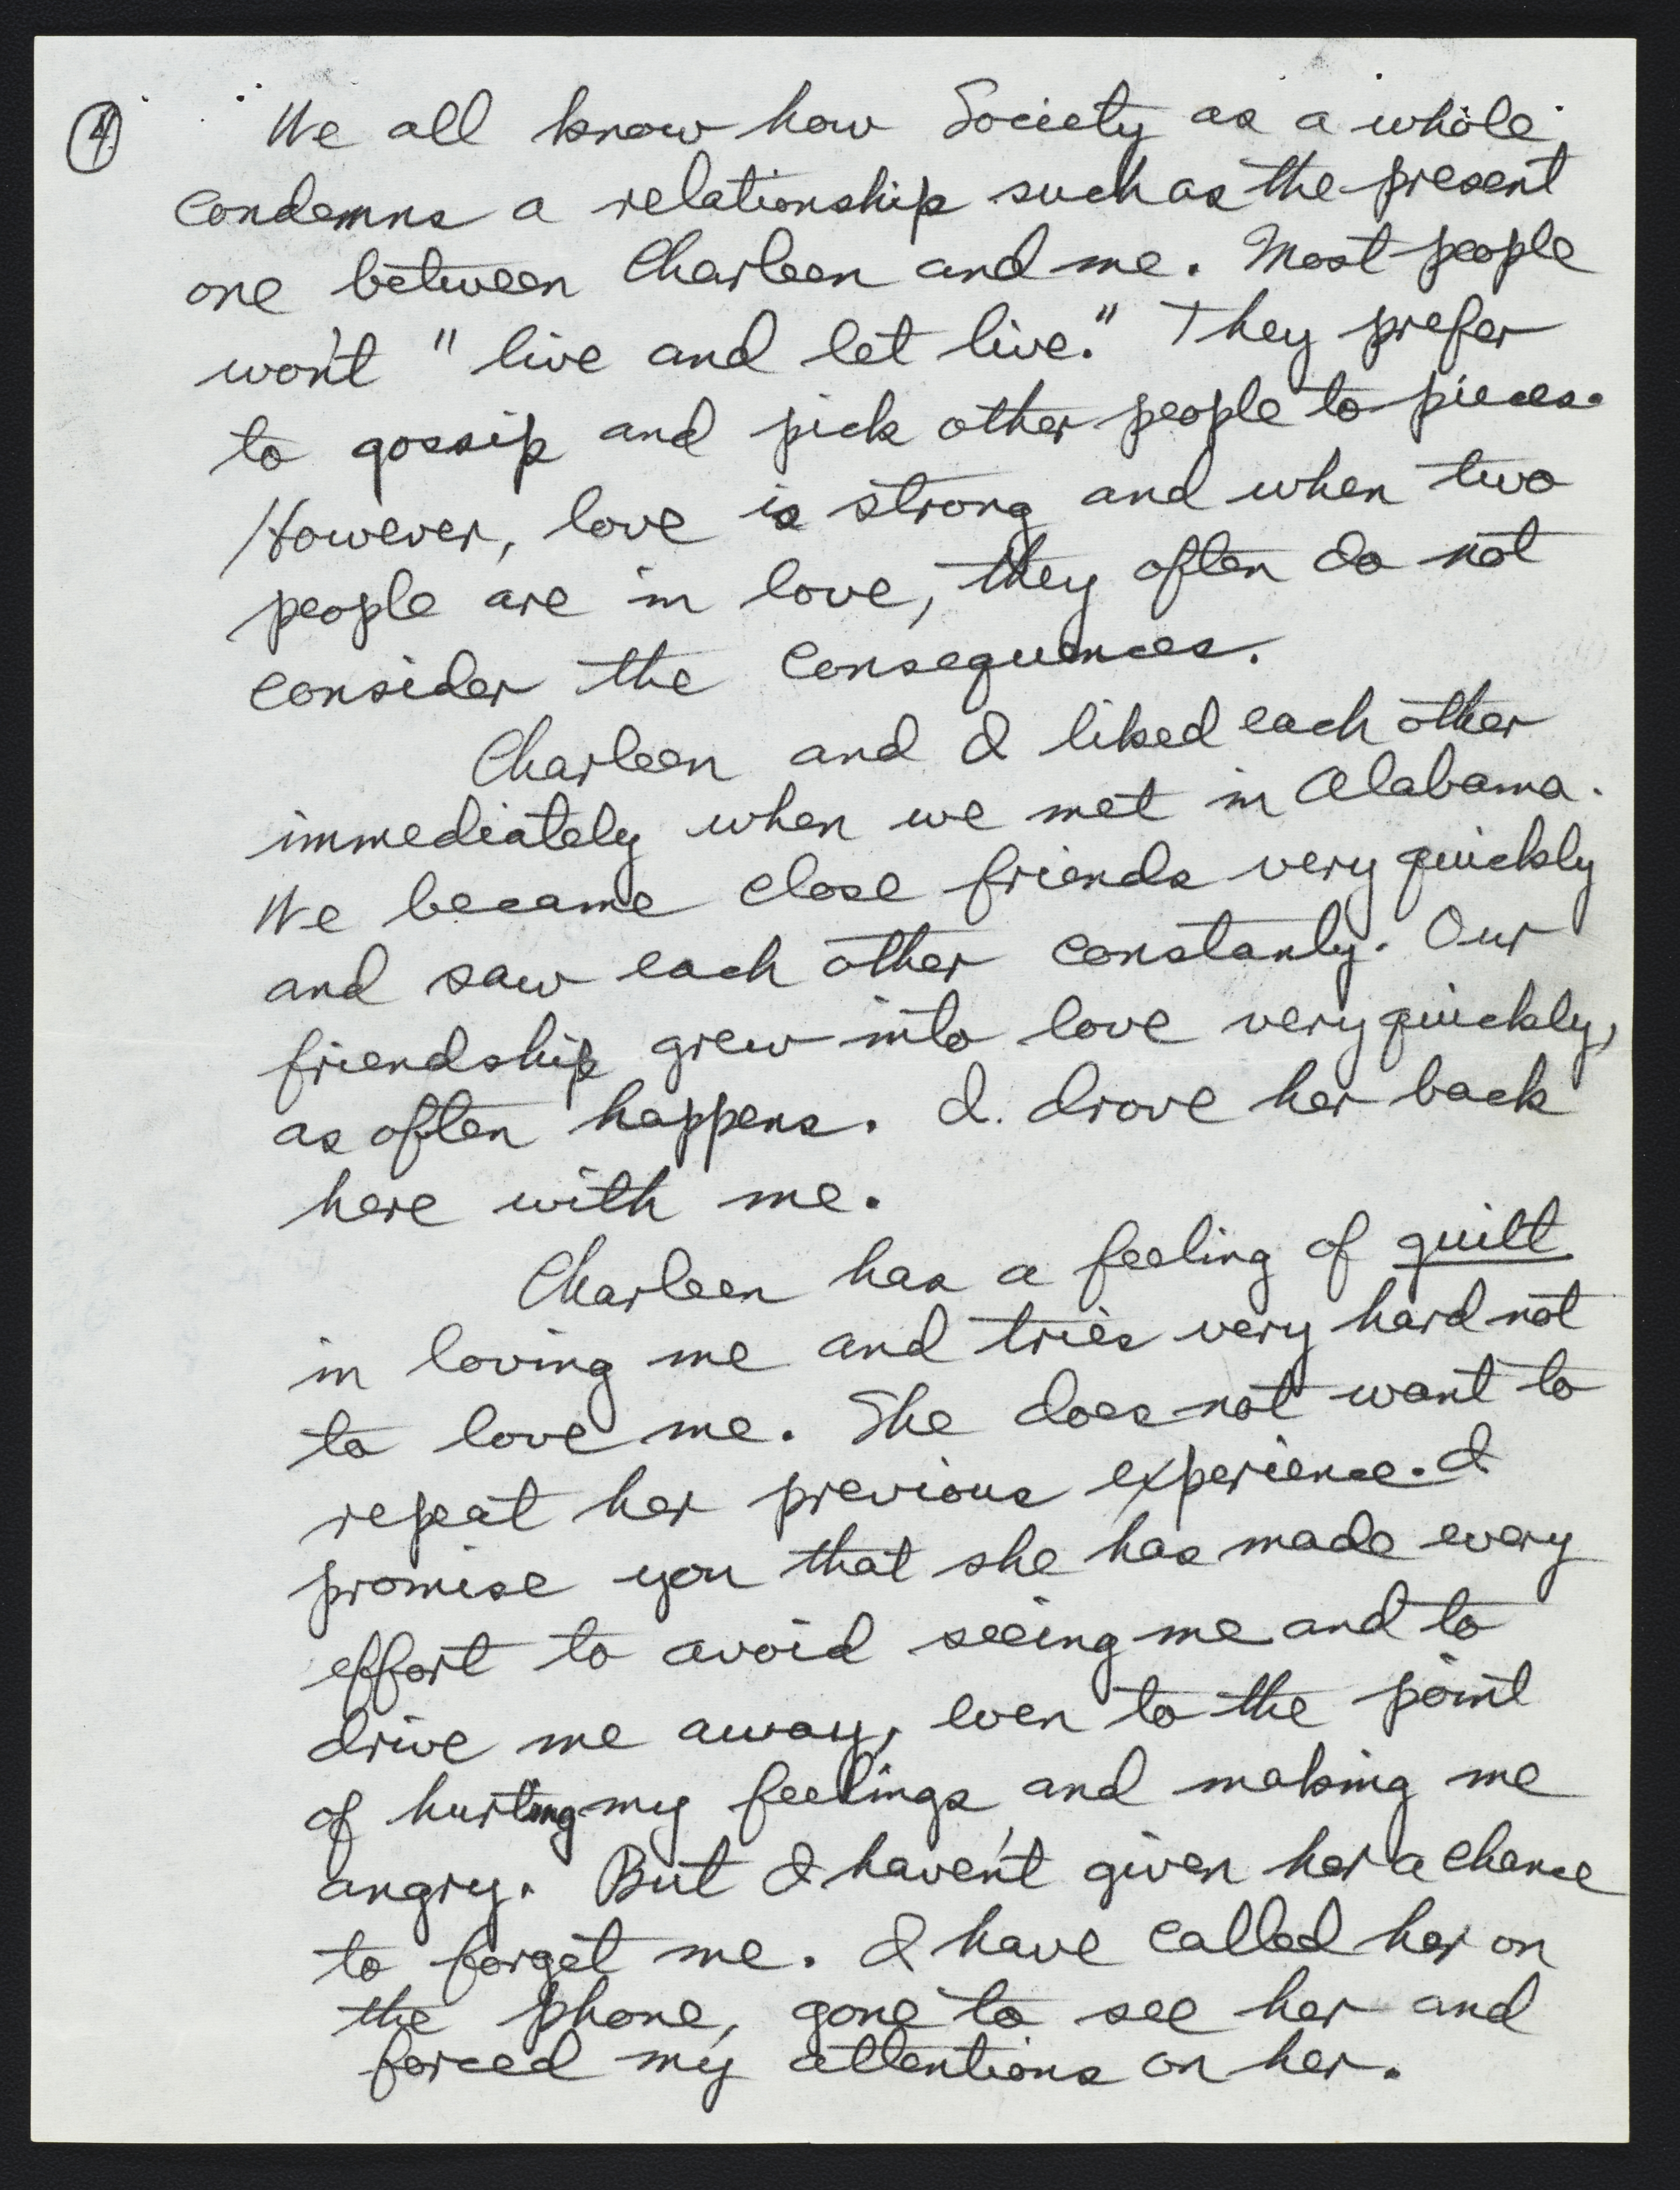 4
We all know how Society as a whole
condemns a relationship such as the present
one between Charleen and me. Most people
won't "live and let live." They prefer
to gossip and pick other people to pieces.
However, love is strong and when two
people are in love, they often do not
consider the consequences.
Charleen and I liked each other
immediately when we met in Alabama.
We became close friends very quickly
and saw each other constanly. Our
friendship grew into love very quickly,
as often happens. I. drove her back
here with me.
Charleen has a feeling of guilt
in loving me and tries very hard not
to love me. She does not want to
repeat her previous experience. I
promise you that she has made every
effort to avoid seeing me and to
drive me away, even to the point
of hurting my feelings, and making me
angry. But I haven't given her a chance
to forget me. I have called her on
the phone, gone to see her and
forced my attentions on her.